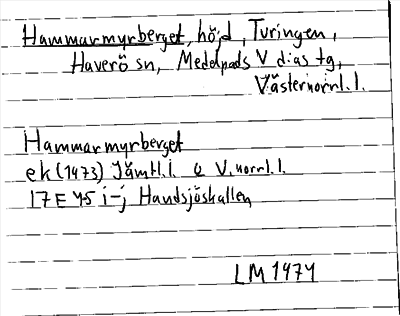 Hammarmyrberget, höjd, Turingen,
Haverö sn, Medelpads V d:as tg,
Västernorrl. l.
Hammarmyrberget
ek (1973) Jämtl. l. o V.norrl. l.
17E 45 i-j Handsjöskallen
LM 1974